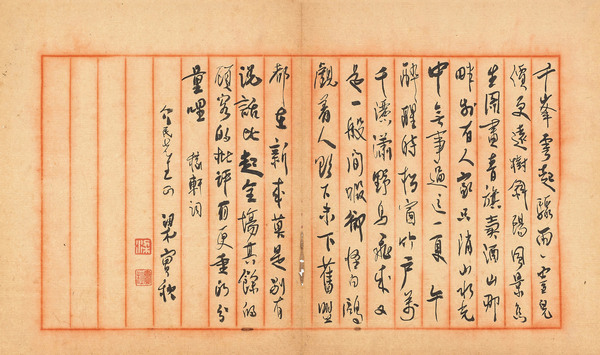 千峯雲起驟雨一霎兒
價更遠樹斜陽風景怎
生圖畫青旗賣酒山那
畔別有人家只消山水光
中無事過這一夏 午
醉醒時松窗竹戶萬
千瀟灑野鳥飛來又
是一般閒暇卻怪白鷗
覷着人欲下未下舊盟
都在新來莫是別有
說話比起全場其餘的
顧客的批評有更重的分
量哩 稼軒詞
介民先生正 梁實秋